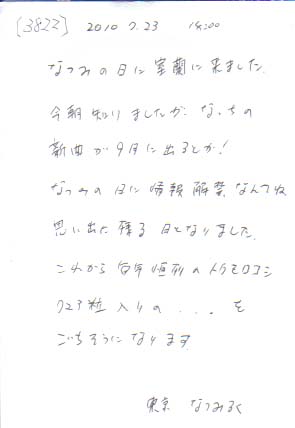 [3822] 2010 7.23 14:00
なつみの日に室蘭に来ました
今朝知りましたが なっちの
新曲が9月に出るとか!
なつみの日に情報解禁なんてね
思い出に残る日となりました
これから毎年恒例のトウモロコシ
723粒入りの...を
ごちそうになります
東京 なつみるく